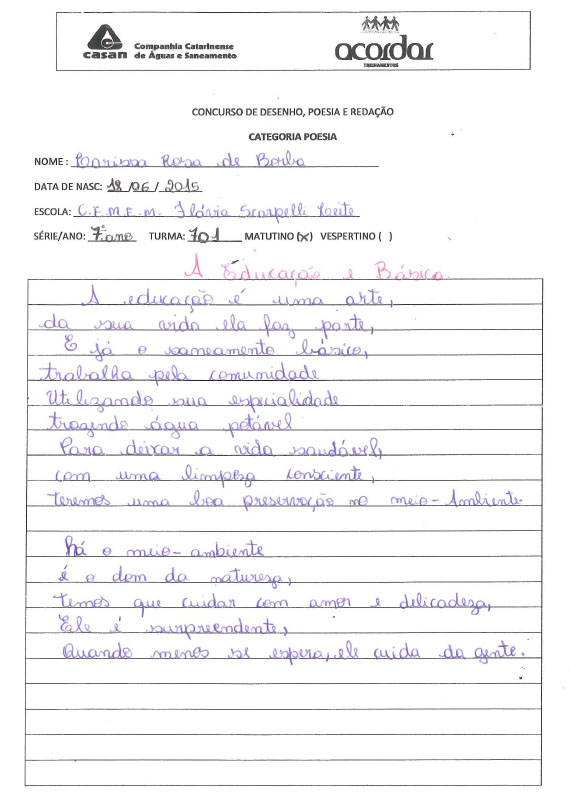 casan Companhia Catarinense
de Águas e Saneamento
acordar
TREINAMENTOS
CONCURSO DE DESENHO, POESIA E REDAÇÃO
CATEGORIA POESIA
NOME: Larissa Rosa de Borba
DATA DE NASC: 18/06/2015
ESCOLA: C.E.M.E.M. Flávia Scarpelli Leite
SÉRIE/ANO: 7º ano TURMA: 701 MATUTINO (x) VESPERTINO ( )
A Educação e Básica
A educação é uma arte,
da sua vida ela faz parte,
E já o saneamento básico,
trabalha pela comunidade
Utilizando sua especialidade
trazendo água potável
Para deixar a vida saudável,
com uma limpeza consciente,
Teremos uma boa preservação no meio-Ambiente
há o meio-ambiente
é o dom da natureza,
Temos que cuidar com amor e delicadeza,
Ele é surpreendente,
Quando menos se espera, ele cuida da gente.